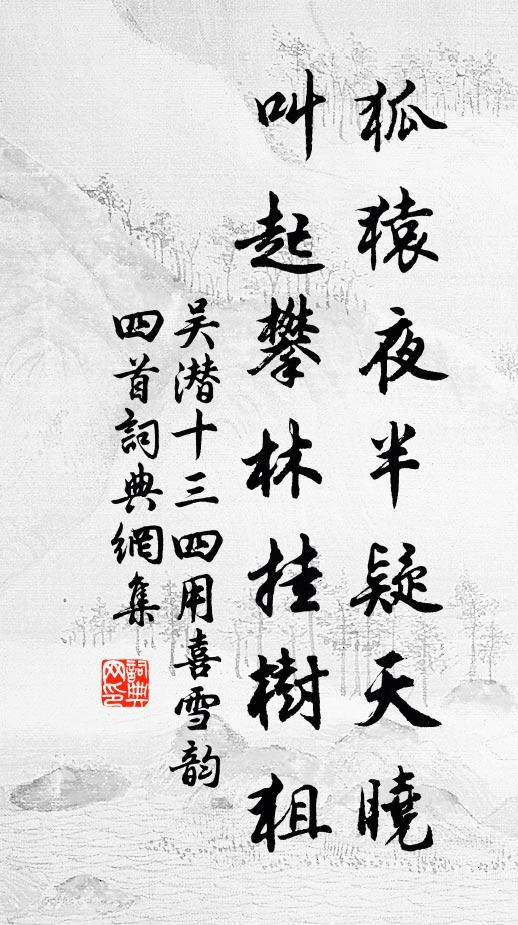 狐猿夜半疑天曉
叫起攀林挂樹狙
吴潜十三四用喜雪韵
四首詞典網集
詞典网印